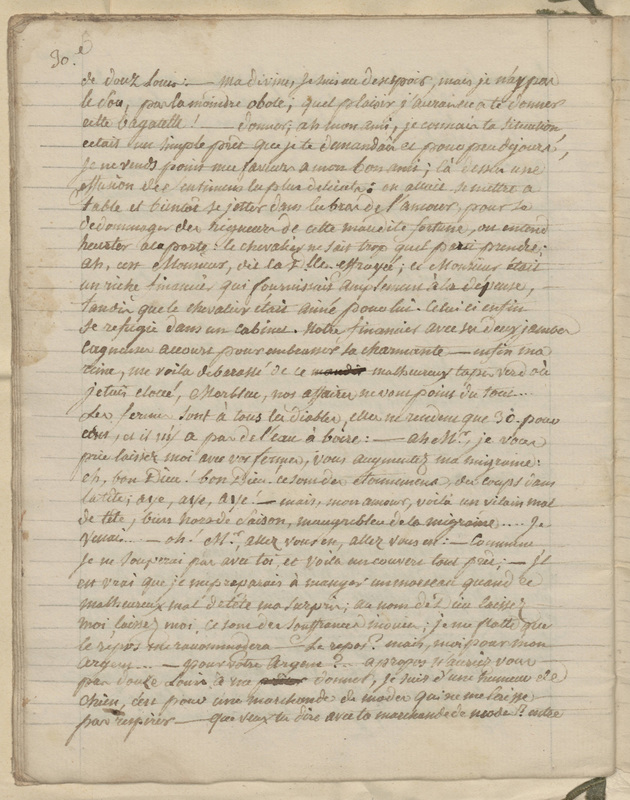 30.e
de douz Louis: — ma divine, je suis au desespoir, mais je n'ay pas
le sou, pas la moindre obole; quel plaisir j'aurais eu a te donner
cette bagatelle! — donner; ah mon ami, je connais ta situation
cetait un simple prêt que je te demandais et pour peu de jours,
je ne vends point mes faveurs a mon bon ami; là dessus une
effusion de sentimens la plus delicate; on allait se mettre a
table et bientot se jetter dans les bras de l'amour, pour se
dedommager des rigueurs de cette maudite fortune, on entend
heurter a la porte. le chevalier ne sait trop quel parti prendre;
ah, cest Monsieur, dit la D.lle effrayée; ce Monsieur était
un riche financier, qui fournissait amplement à la dépense,
tandis que le chevalier était aimé pour lui. Celui ci enfin
se refugie dans un cabinet. Notre financier avec ses deux jambes
cagneuses accourt pour embrasser sa charmante — enfin ma
reine, me voila debarassé de ce maudit malheureux tapis verd où
jetais cloué, Morbleu, nos affaires ne vont point du tout...
les fermes sont à tous les diables, elles ne rendent que 30. pour
cent, et il n'y a pas de l'eau à boire: — ah M.r, je vous
prie laissez moi avec vos fermes, vous augmentez ma migraine:
eh, bon Dieu! bon Dieu. ce sont des étourdissemens, des coups dans
la tête; aye, aye, aye! — mais, mon amour, voilà un vilain mal
de tête, bien hors de saison, maugrebleu de la migraine.... je
venais... — oh! M.r, allez vous en, allez vous en: — Comment
je ne souperai pas avec toi, et voila un couvert tout prêt; — jl
est vrai que je me preparais à manger un morceau quand ce
malheureux mal de tête m'a surpris; au nom de Dieu laissez
moi laissez moi, ce sont des souffrances inouies; je me flatte que
le repos me raccommodera — Le repos? mais, moi pour mon
argent... — pour votre argent? — a propos n'auriez vous
pas douze Louis a me donner, je suis d'une humeur de
chien, c'est pour une marchande de modes qui ne me laisse
pas respirer — que veux tu dire avec ta marchande de mode? entre